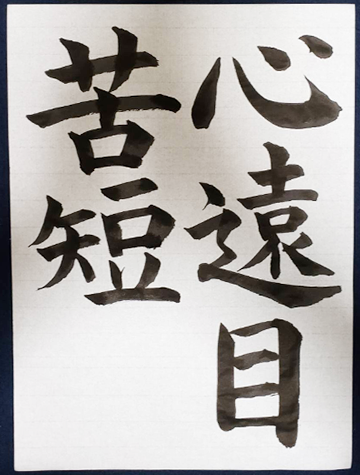 心遠目
苦短